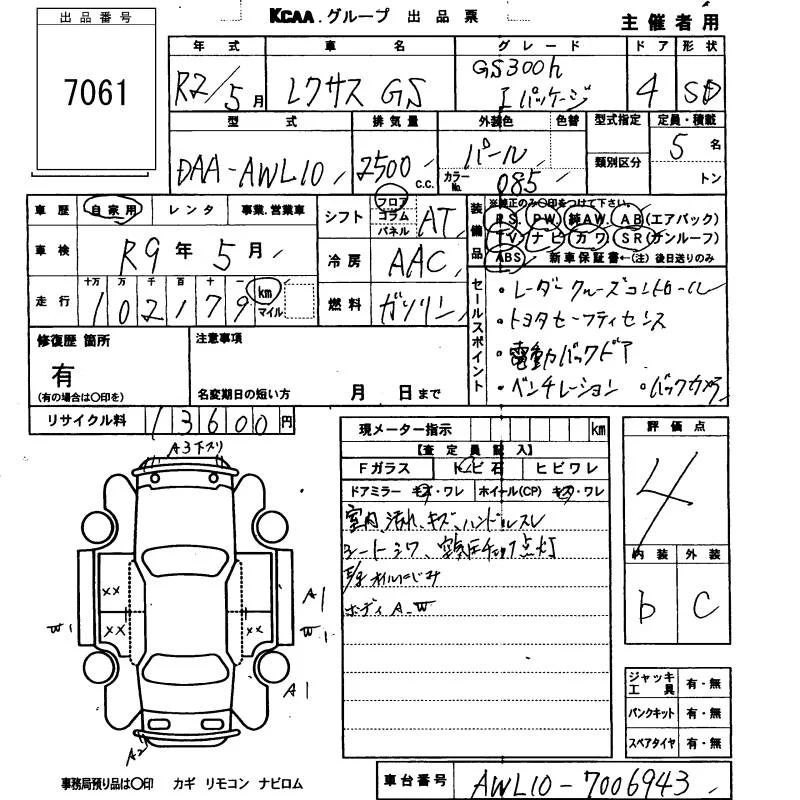 KCAA.グループ 出品票
主催者用
出品番号
7061
年式 車名 グレード ドア 形状
R2/5月 レクサス GS GS300h Iパッケージ 4 SD
型式 排気量 外装色 色替 型式指定 定員・積載
DAA-AWL10 2500 c.c. パール 5名
カラーNo. 085 類別区分 トン
車歴 自家用 レンタ 事業.営業車
車検 R9年5月
走行 十万 万 千 百 十 一
102179 km マイル
シフト フロア コラム パネル AT
冷房 AAC
燃料 ガソリン
装備品 ※純正のみ○印をつけて下さい。
P.S. P.W. 純AW. AB(エアバック)
TV ナビ カワ SR(サンルーフ)
ABS 新車保証書←(注)後日送りのみ
セールスポイント
・レーダークルーズコントロール
・トヨタセーフティセンス
・電動バックドア
・ベンチレーション ・バックカメラ
修復歴 箇所
有
(有の場合は○印を)
注意事項
名変期日の短い方 月 日まで
リサイクル料 13600円
現メーター指示 km
【査定員記入】
Fガラス トビ石 ヒビワレ
ドアミラー キズ・ワレ ホイール(CP) キズ・ワレ
室内汚れ、キズ、ハンドルスレ
シートシワ、空気圧チェック点灯
オイルにじみ
ボディ A-W
評価点
4
内装 外装
b C
A3下スリ
XX
XX XX
W1
A1
W1
A1
A2
ジャッキ工具 有・無
パンクキット 有・無
スペアタイヤ 有・無
事務局預り品は○印 カギ リモコン ナビロム
車台番号 AWL10-7006943